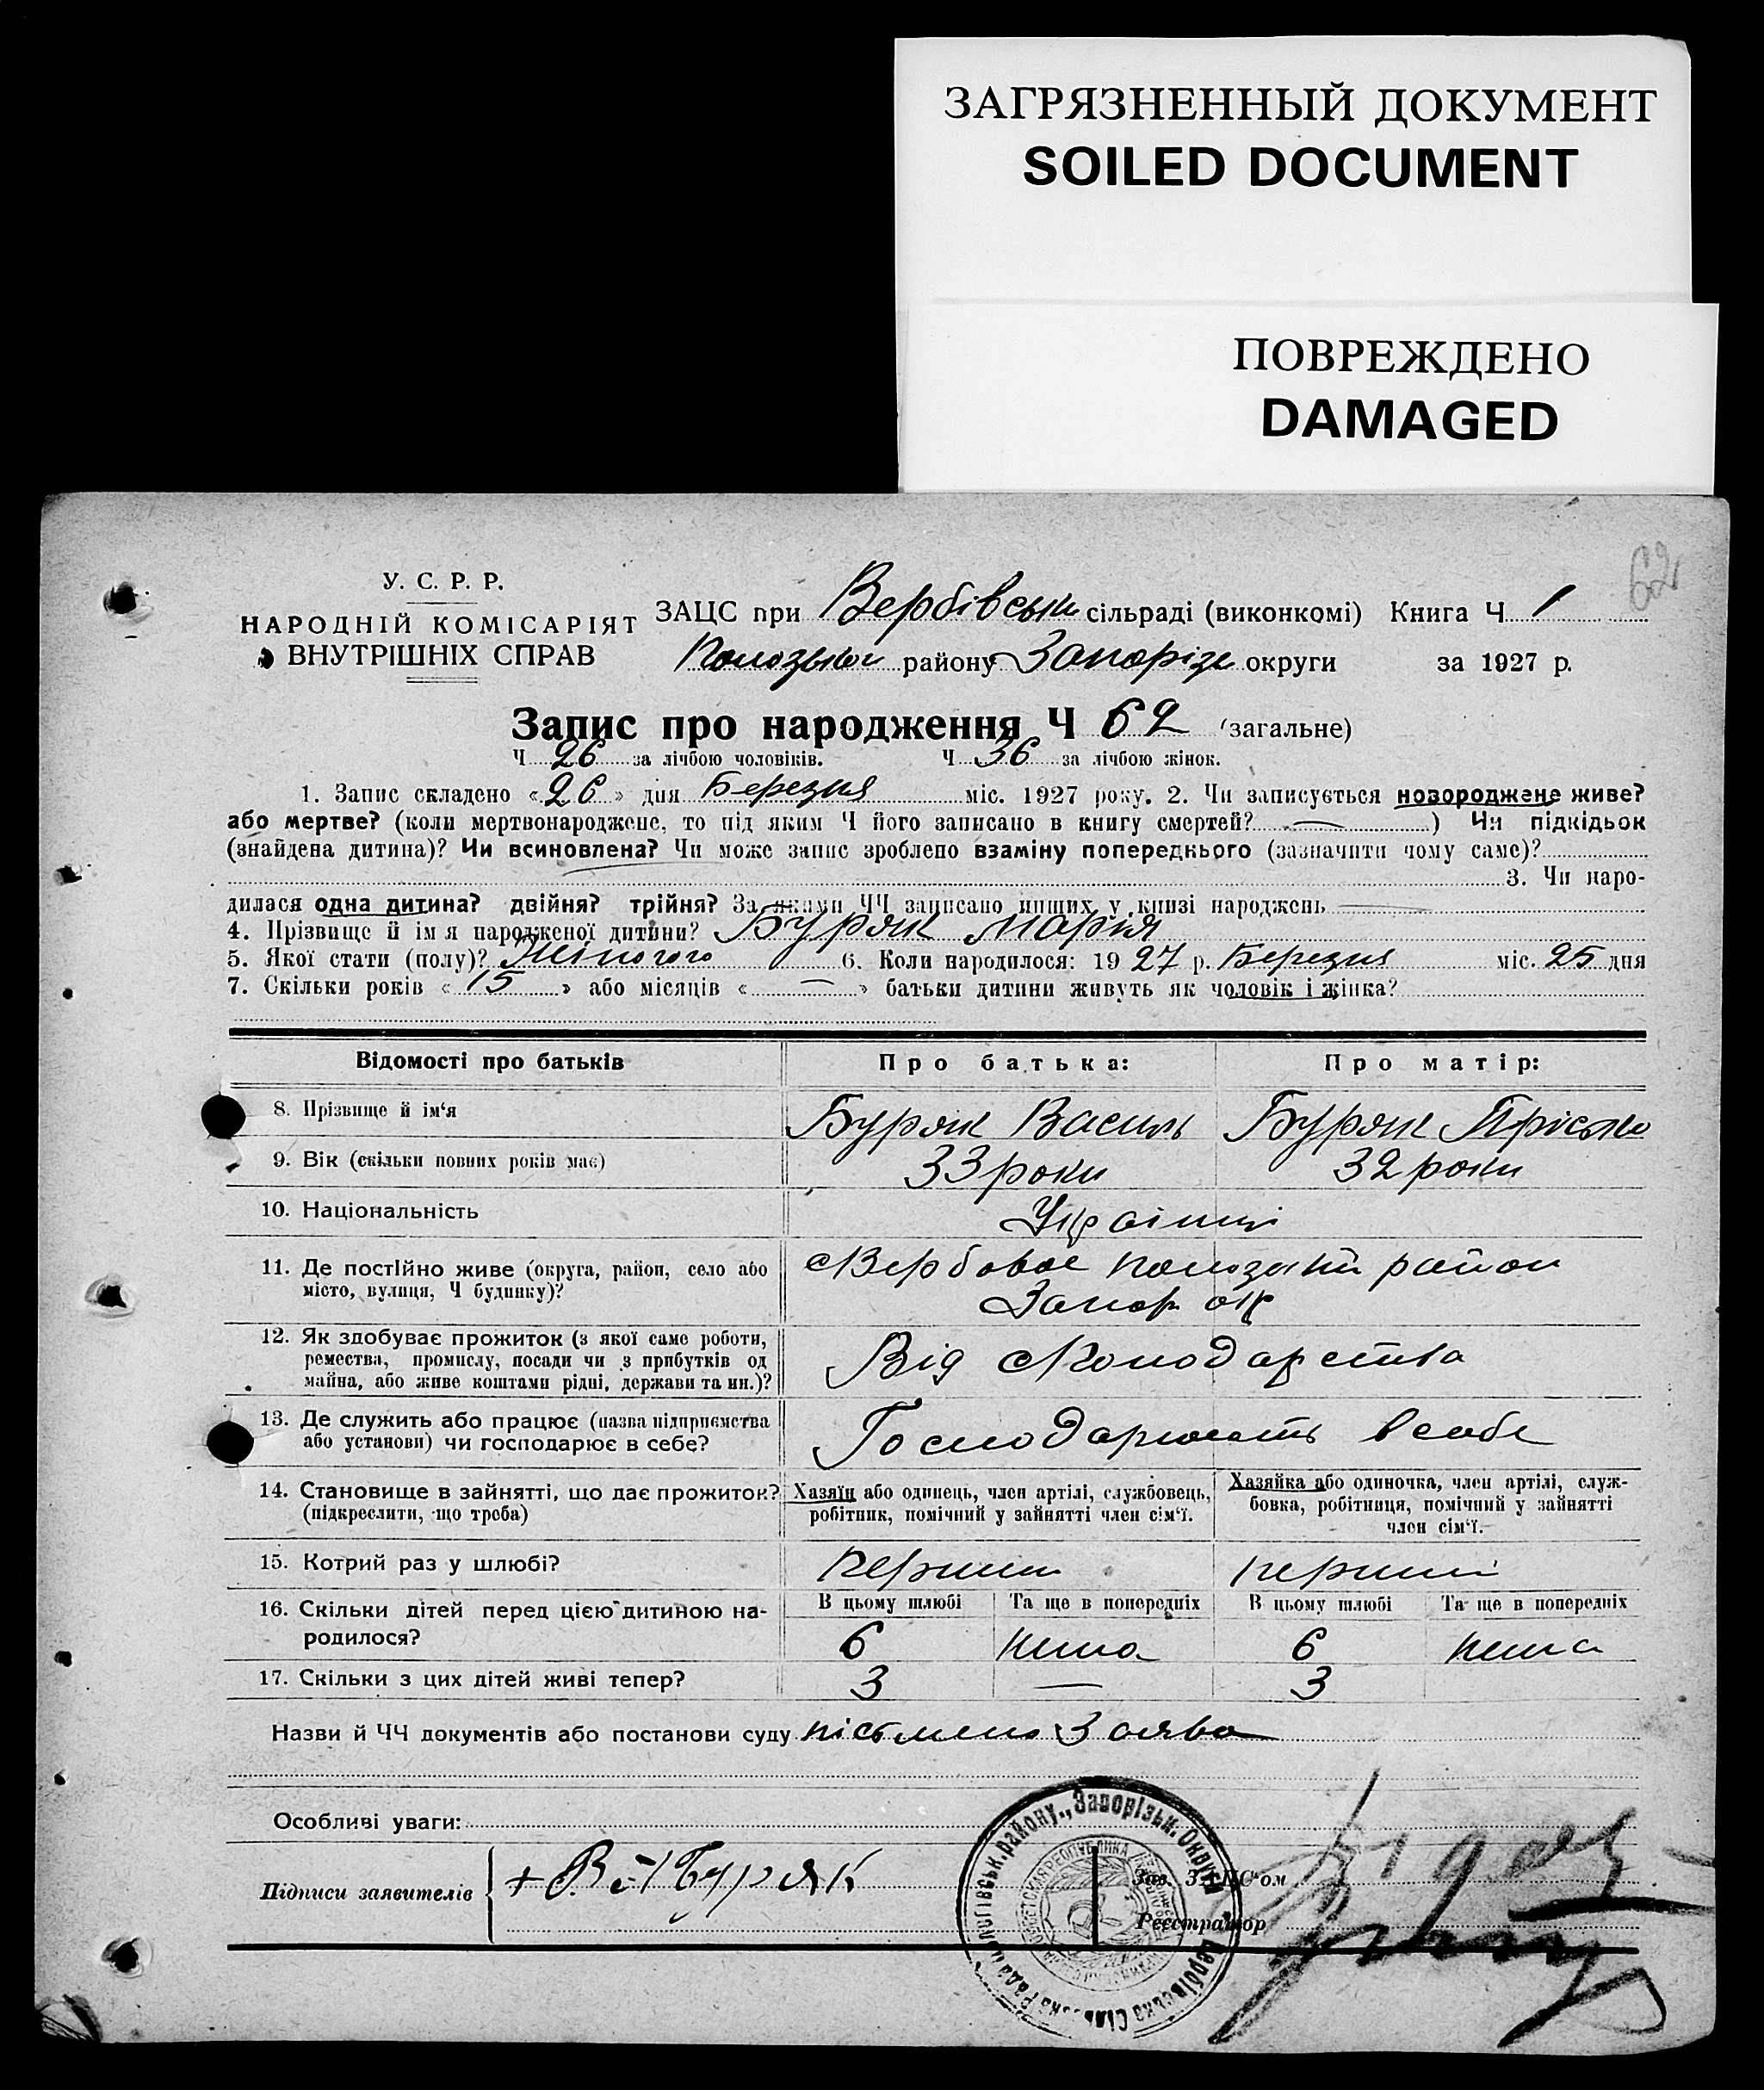 ЗАГРЯЗНЕННЫЙ ДОКУМЕНТ
SOILED DOCUMENT
ПОВРЕЖДЕНО
DAMAGED
62
У. С. Р. Р.
НАРОДНІЙ КОМІСАРІЯТ
ВНУТРІШНІХ СПРАВ
ЗАЦС при Вербівській сільраді (виконкомі) Книга Ч 1
району Запорізь округи за 1927 р.
Запис про народження Ч 62 (загальне)
Ч 26 за лічбою чоловіків. Ч 36 за лічбою жінок.
1. Запис складено «26» дня Березня міс. 1927 року. 2. Чи записується новороджене живе?
або мертве? (коли мертвонароджене, то під яким Ч його записано в книгу смертей? —) Чи підкідьок
(знайдена дитина)? Чи всиновлена? Чи може запис зроблено взаміну попереднього (зазначити чому саме)?
3. Чи наро-
дилася одна дитина? двійня? трійня? За якими ЧЧ записано инших у книзі народжень —
4. Прізвище й ім я народженої дитини? Буряк Марія
5. Якої стати (полу)? Жіночого 6. Коли народилося: 1927 р. Березня міс. 25 дня
7. Скільки років «15» або місяців «—» батьки дитини живуть як чоловік і жінка?
Відомості про батьків Про батька: Про матір:
8. Прізвище й ім‘я Буряк Василь Буряк Пріська
9. Вік (скільки повних років має) 33 роки 32 роки
10. Національність Українці
11. Де постійно живе (округа, район, село або
місто, вулиця, Ч будинку)?
с Вербовое район
Запор ок
12. Як здобуває прожиток (з якої саме роботи,
ремества, промислу, посади чи з прибутків од
майна, або живе коштами рідні, держави та ин.)?
Від
13. Де служить або працює (назва підприємства
або установи) чи господарює в себе?
Господарюють в себе
14. Становище в зайнятті, що дає прожиток?
(підкреслити, що треба)
Хазяїн або одинець, член артілі, службовець,
робітник, помічний у зайнятті член сім‘ї.
Хазяйка або одиночка, член артілі, служ-
бовка, робітниця, помічний у зайнятті
член сім‘ї.
15. Котрий раз у шлюбі? перший перший
16. Скільки дітей перед цією дитиною на-
родилося?
В цьому шлюбі Та ще в попередніх В цьому шлюбі Та ще в попередніх
6 нима 6 нима
17. Скільки з цих дітей живі тепер? 3 — 3
Назви й ЧЧ документів або постанови суду заява
Особливі уваги:
Підписи заявителів + Буряк
Зав. ЗАЦС‘ом
Реєстратор